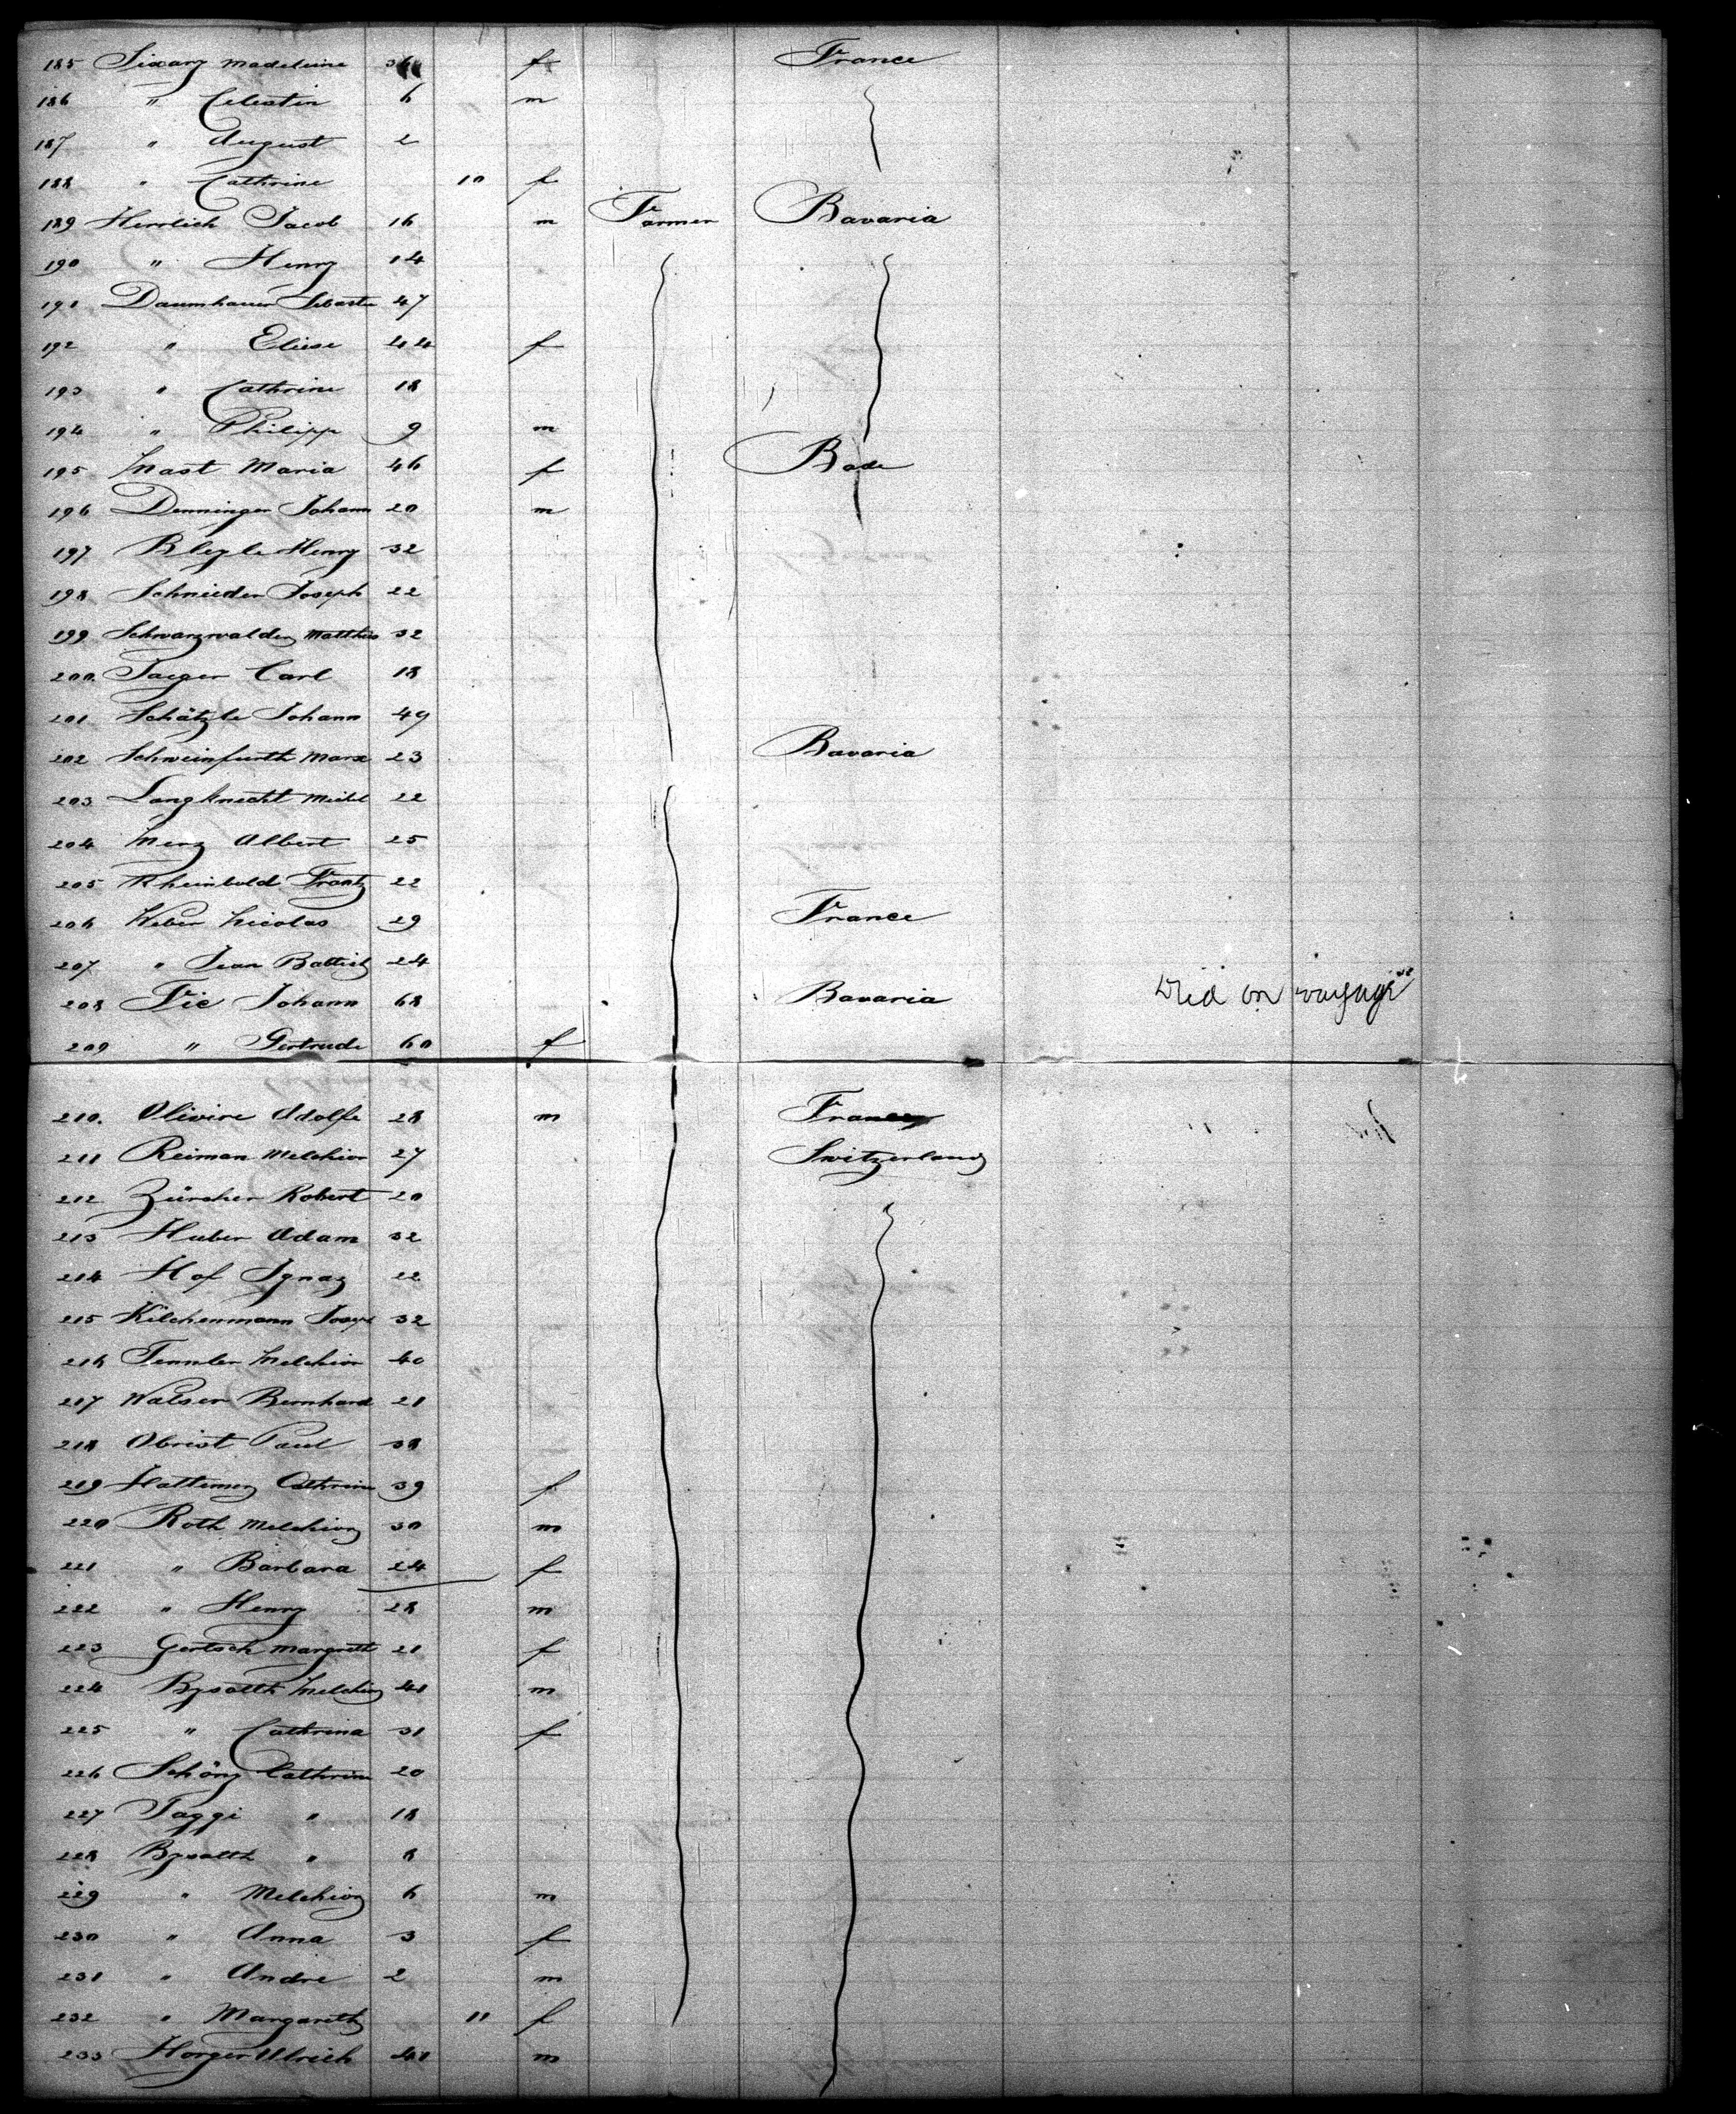 185 Sixary Madeleine 36 f France
186 " Celestin 6 m
187 " August 2
188 " Cathrine 10 f
189 Herrlich Jacob 16 m Farmer Bavaria
190 " Henry 14
191 Daumhauer Sebastn 47
192 " Eliese 44 f
193 " Cathrine 18
194 " Philipp 9 m
195 Mast Maria 46 f Bade
196 Denninger Johann 20 m
197 Bleyle Henry 32
198 Schnieder Joseph 22
199 Schwarzwalder Matthias 32
200. Jaeger Carl 18
201 Schätzle Johann 49
202 Schweinfurth Marx 23 Bavaria
203 Langknecht Michel 22
204 Merz Albert 25
205 Rheinbold Frantz 22
206 Weber Nicolas 29 France
207 " Jean Battist 24
208 Fie Johann 68 Bavaria Died on voyage
209 " Gertrude 60 f
210. Olivire Adolfe 28 m France
211 Reiman Melchior 27 Switzerland
212 Zürcher Robert 20
213 Huber Adam 32
214 Hof Ignaz 22
215 Kilchenmann Joseph 32
216 Tennler Melchior 40
217 Walser Bernhard 21
218 Obrist Paul 38
219 Hattemer Cathrine 39 f
220 Roth Melchior 30 m
221 " Barbara 24 f
222 " Henry 28 m
223 Gertsch Margreth 21 f
224 Bysaeth Melchior 41 m
225 " Cathrina 31 f
226 Schöny Cathrine 20
227 Jaggi " 18
228 Bysaeth " 8
229 " Melchior 6 m
230 " Anna 3 f
231 " Andre 2 m
232 " Margareth 11 f
233 Horger Ulrich 41 m